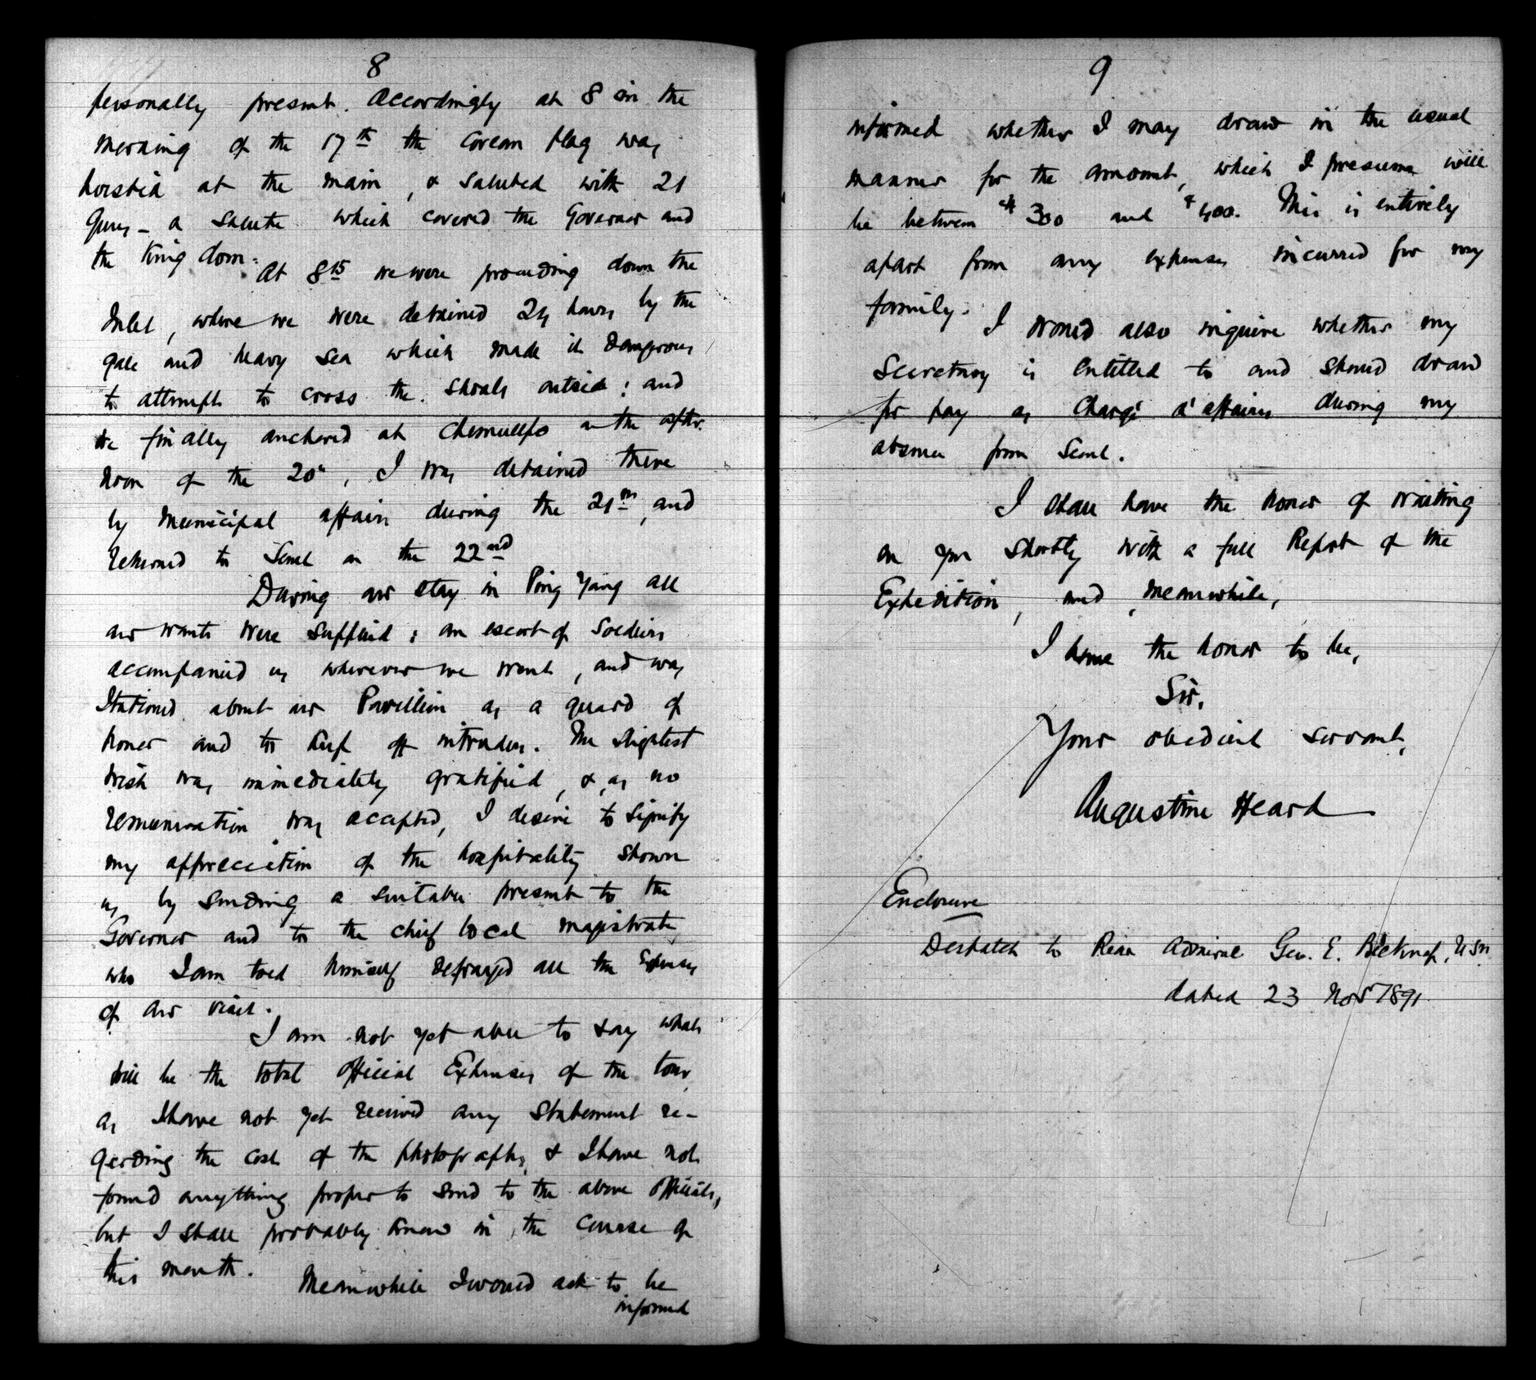 8
personally present. Accordingly at 8 in the
morning of the 17th the Corean flag was
hoisted at the main, & saluted with 21
guns - a salute which covered the Governor and
the Kingdom.
At 8 15 we were proceeding down the
Inlet, where we were detained 24 hours by the
gale and heavy sea which made it dangerous
to attempt to cross the shoals outside: and
we finally anchored at Chemulpo in the after-
noon of the 20th. I was detained there
by municipal affairs during the 21st, and
returned to Seoul on the 22nd
During our stay in Ping Yang all
our wants were supplied: an escort of soldiers
accompanied us wherever we went, and was
stationed about our Pavillion as a guard of
honor and to keep off intruders. The slightest
wish was immediately gratified, & as no
remuneration was accepted, I desire to signify
my appreciation of the hospitality shown
us by sending a suitable present to the
Governor and to the chief local magistrate,
who I am told himself defrayed all the expenses
of our visit.
I am not yet able to say what
will be the total official Expenses of the tour,
as I have not yet received any statement re-
garding the cost of the photographs, & I have not
found anything proper to send to the above officials,
but I shall probably know in the course of
this month.
Meanwhile I would ask to be
informed
9
informed whether I may draw in the usual
manner for the amount, which I presume will
be between $300 and $400. This is entirely
apart from any expenses incurred for my
family.
I would also inquire whether my
Secretary is entitled to and should draw
for pay as Chargé d'affaires during my
absence from Seoul.
I shall have the honor of writing
on you shortly with a full Report of the
Expedition, and, meanwhile,
I have the honor to be,
Sir,
Your obedient servant,
Augustine Heard
Enclosure
Despatch to Rear Admiral Geo. E. Belknap, USN
dated 23 Nov 1891